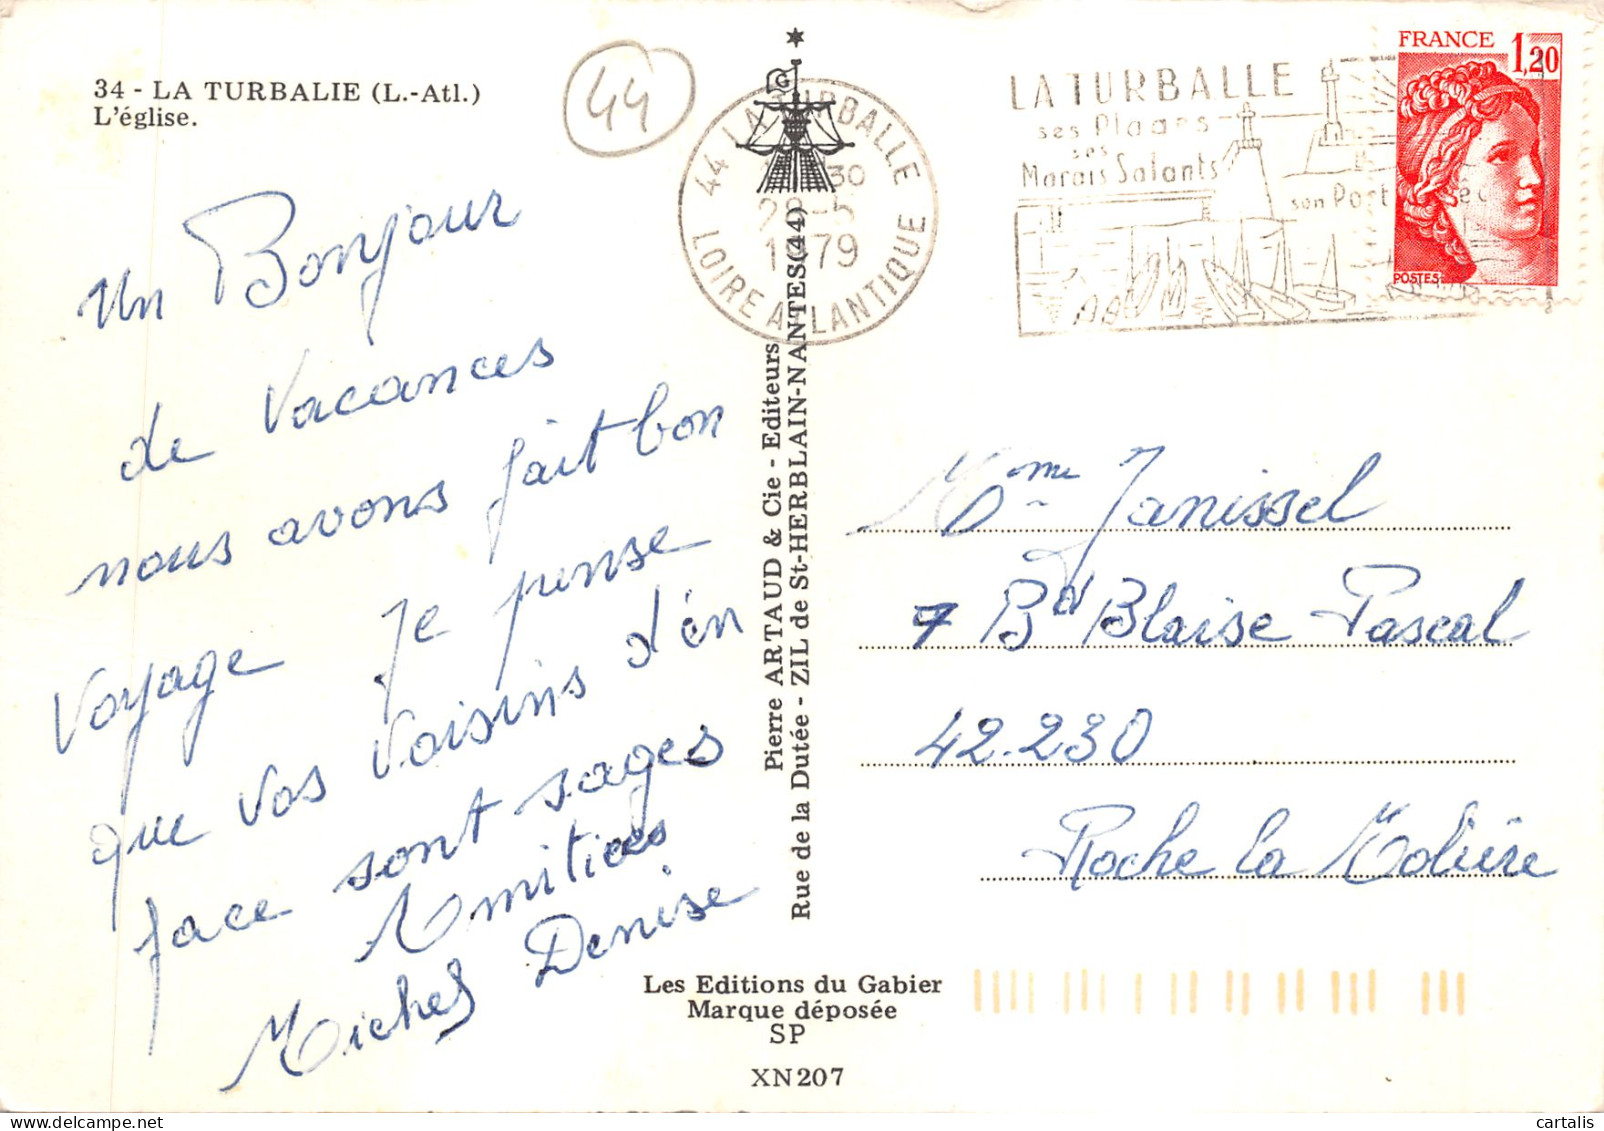 34 - LA TURBALIE (L.-Atl.)
L'église.
44
Un Bonjour
de Vacances
nous avons fait bon
Voyage Je pense
que vos Voisins d'én
face sont sages
Amitiées
Michel Denise
44 LA TURBALLE
30
28-5
1979
LOIRE ATLANTIQUE
LA TURBALLE
ses Plages
ses
Marais Salants
son Port
FRANCE 1,20
POSTES
Pierre ARTAUD & Cie - Editeurs
Rue de la Dutée - ZIL de St-HERBLAIN-NANTES (44)
Mme Janissel
7 Bd Blaise Pascal
42.230
Roche la Molière
Les Editions du Gabier
Marque déposée
SP
XN207
cartalis